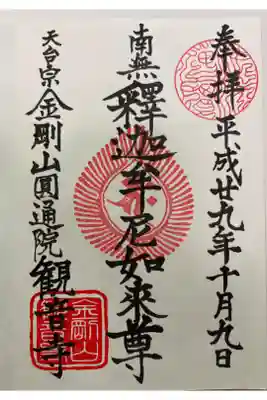 奉拝 平成廿九年十月九日
南無釋迦牟尼如來尊
天台宗 金剛山圓通院 観音寺
金剛山